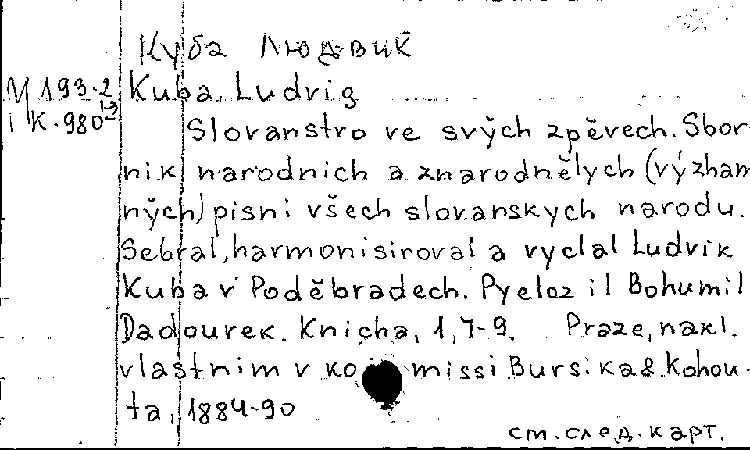 Куба Людвик
М 193-2
Kuba Ludvig
К-980 1-3
Slovanstro ve svých zpěvech. Sbor-
nik narodnich a znarodnělych (význam-
ných) pisni všech slovanskych narodu.
Sebral, harmonisiroval a vyclal Ludvik
Kuba v Poděbradech. Pyeloz il Bohumil
Dadourek. Knicha, 1,7-9. Praze, nakl.
vlastnim v ko missi Bursika & Kohou-
ta, 1884-90
см. след. карт.